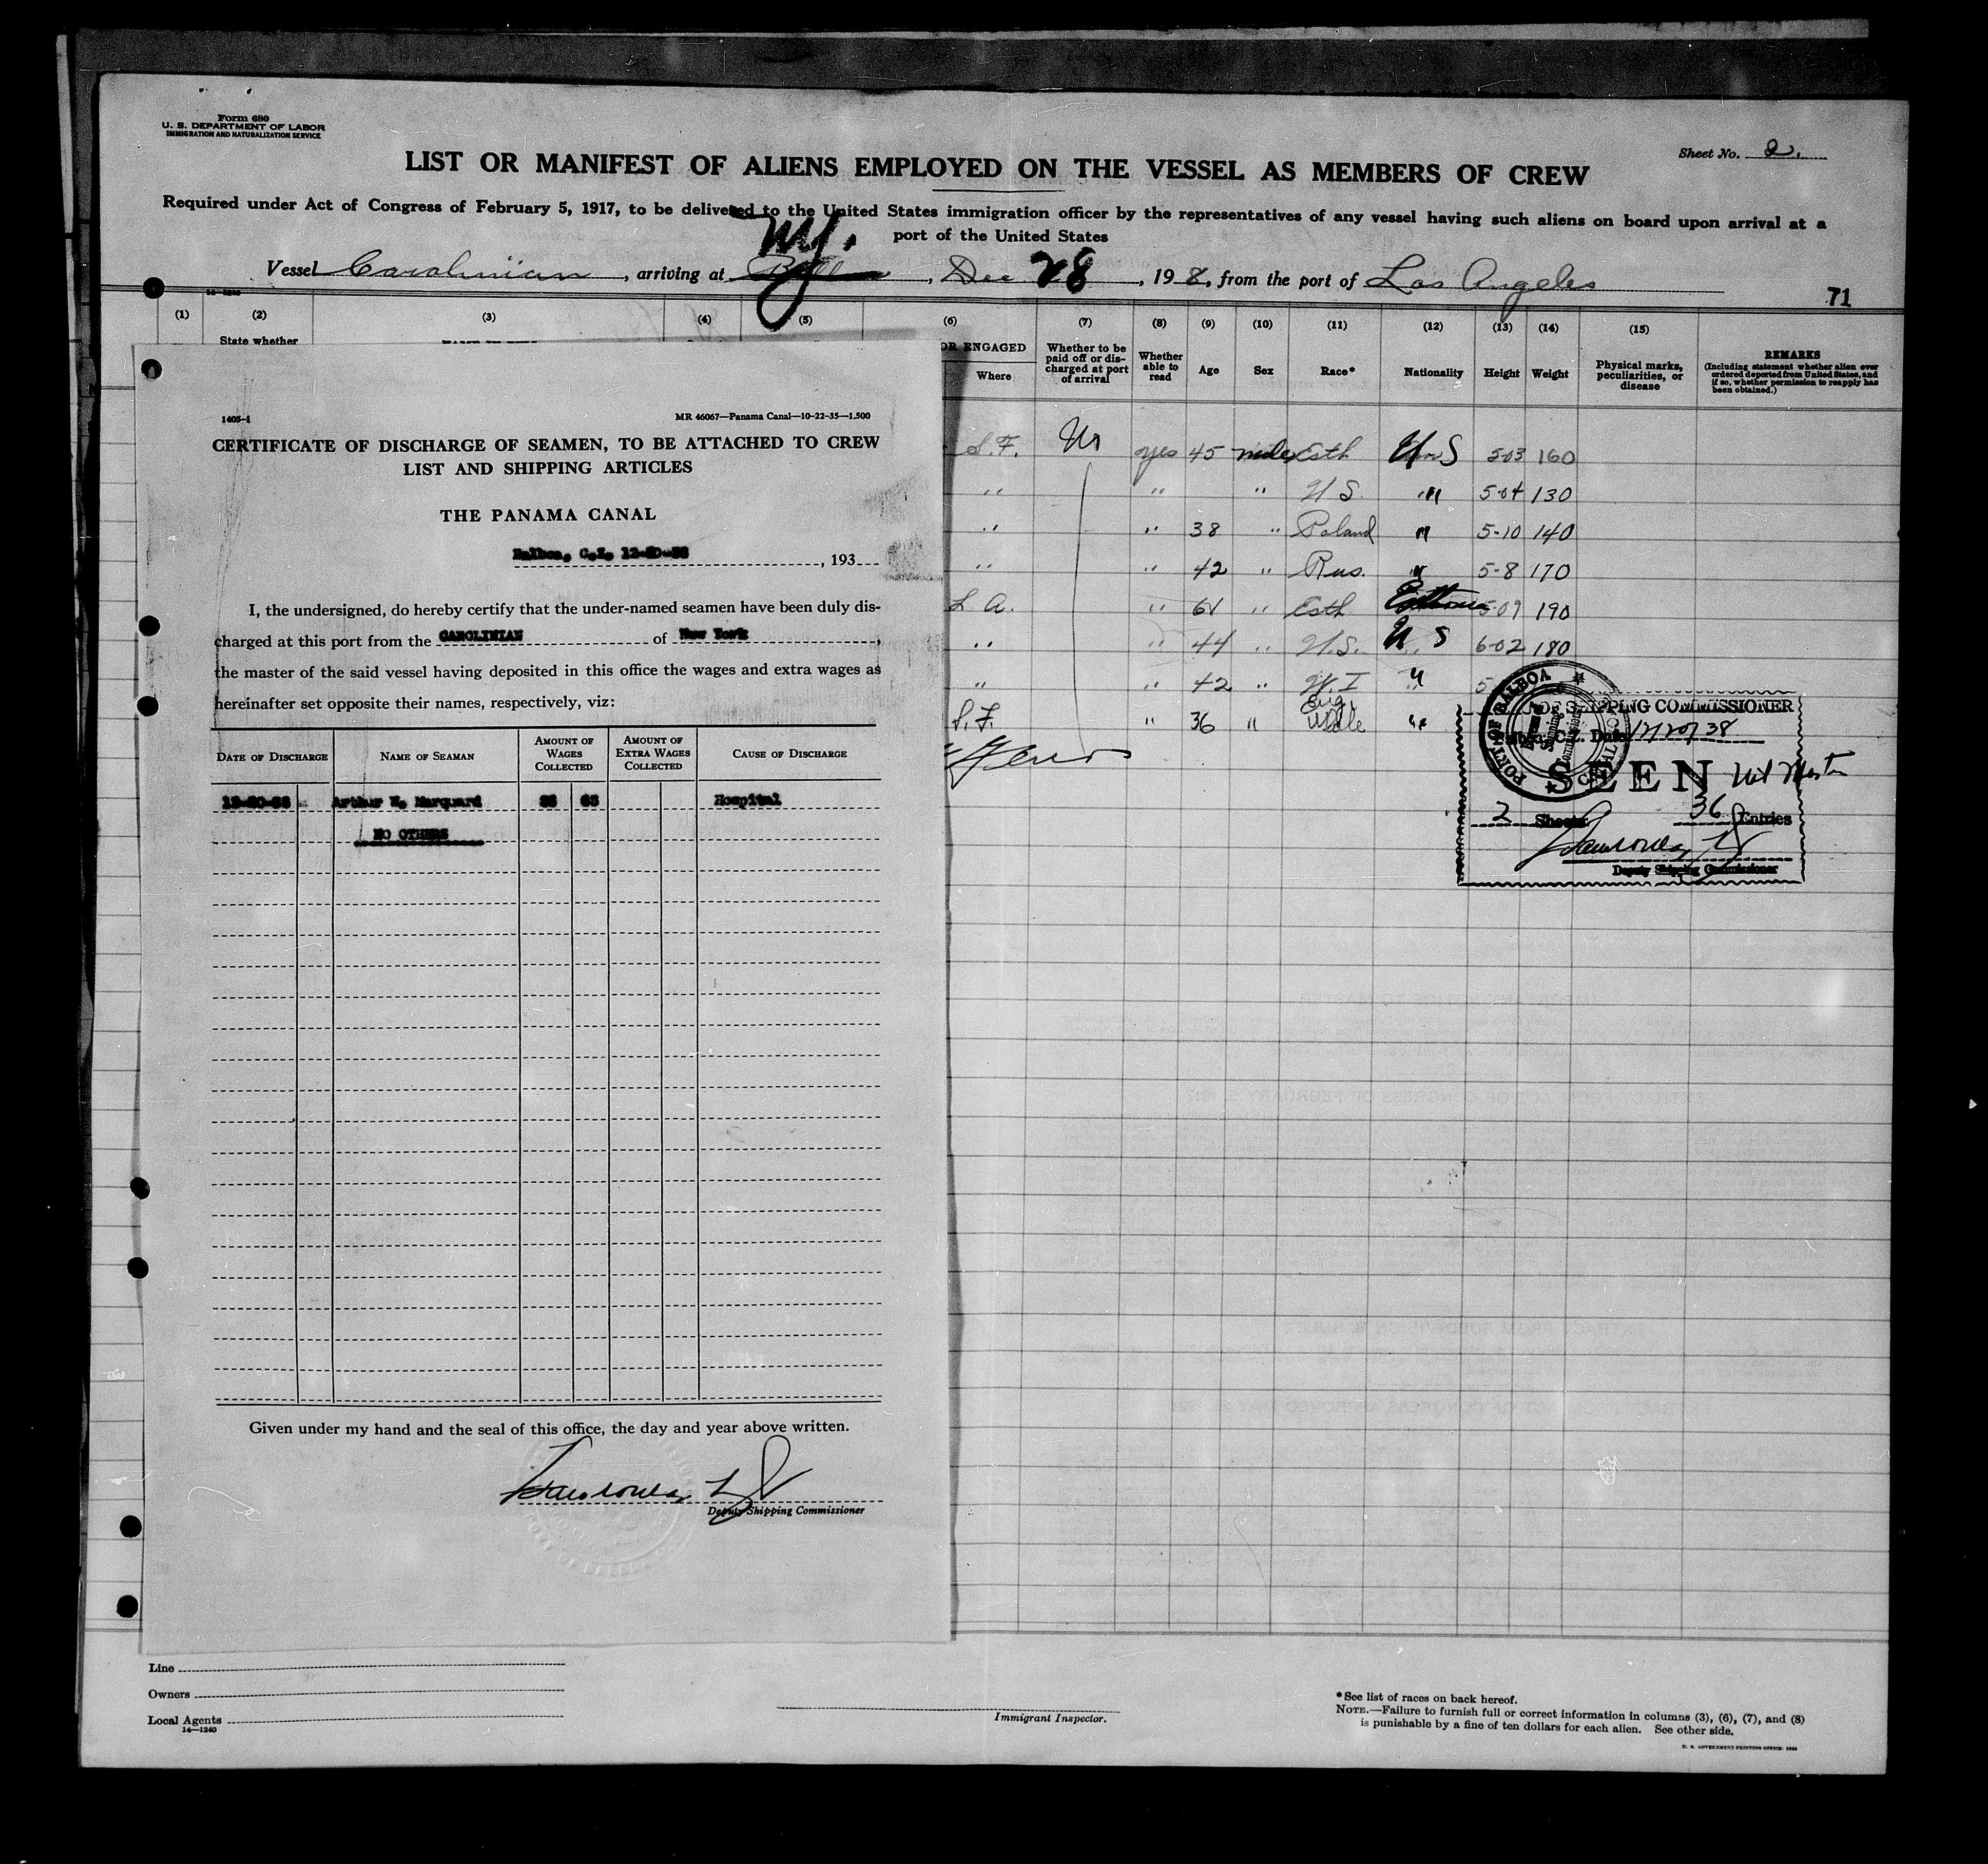 Form 680
U. S. DEPARTMENT OF LABOR
IMMIGRATION AND NATURALIZATION SERVICE
Sheet No. 2.
LIST OR MANIFEST OF ALIENS EMPLOYED ON THE VESSEL AS MEMBERS OF CREW
Required under Act of Congress of February 5, 1917, to be delivered to the United States immigration officer by the representatives of any vessel having such aliens on board upon arrival at a
port of the United States
Vessel Carolinian, arriving at N.Y., Dec 28, 19 8, from the port of Los Angeles
71
(1) (2) (3) (4) (5) (6) (7) (8) (9) (10) (11) (12) (13) (14) (15)
State whether
OR ENGAGED
Where
Whether to be paid off or discharged at port of arrival
Whether able to read
Age
Sex
Race*
Nationality
Height
Weight
Physical marks, peculiarities, or disease
REMARKS
(Including statement whether alien ever ordered deported from United States, and if so, whether permission to reapply has been obtained.)
S.F. yes 45 male Esth U S 5-03 160
" " " U S. " 5-04 130
" " 38 " Poland " 5-10 140
" " 42 " Rus. " 5-8 170
L A. " 61 " Esth 5-09 190
" " 44 " U.S. U S 6-02 180
" " 42 " W. I " 5
S.F. " 36 " "
1405-1
MR 46067—Panama Canal—10-22-35—1,500
CERTIFICATE OF DISCHARGE OF SEAMEN, TO BE ATTACHED TO CREW
LIST AND SHIPPING ARTICLES
THE PANAMA CANAL
Balboa, C.Z. 12-20-38, 193
I, the undersigned, do hereby certify that the under-named seamen have been duly dis-
charged at this port from the CAROLINIAN of New York,
the master of the said vessel having deposited in this office the wages and extra wages as
hereinafter set opposite their names, respectively, viz:
DATE OF DISCHARGE
NAME OF SEAMAN
AMOUNT OF WAGES COLLECTED
AMOUNT OF EXTRA WAGES COLLECTED
CAUSE OF DISCHARGE
12-20-38 Arthur Marquard Hospital
NO OTHERS
Given under my hand and the seal of this office, the day and year above written.
Deputy Shipping Commissioner
PORT OF BALBOA
SHIPPING COMMISSIONER
C.Z. Date 12/20/38
SEEN
2 Sheets 36 Entries
Deputy Shipping Commissioner
Line
Owners
Local Agents
14—1240
Immigrant Inspector.
*See list of races on back hereof.
NOTE.—Failure to furnish full or correct information in columns (3), (6), (7), and (8)
is punishable by a fine of ten dollars for each alien. See other side.